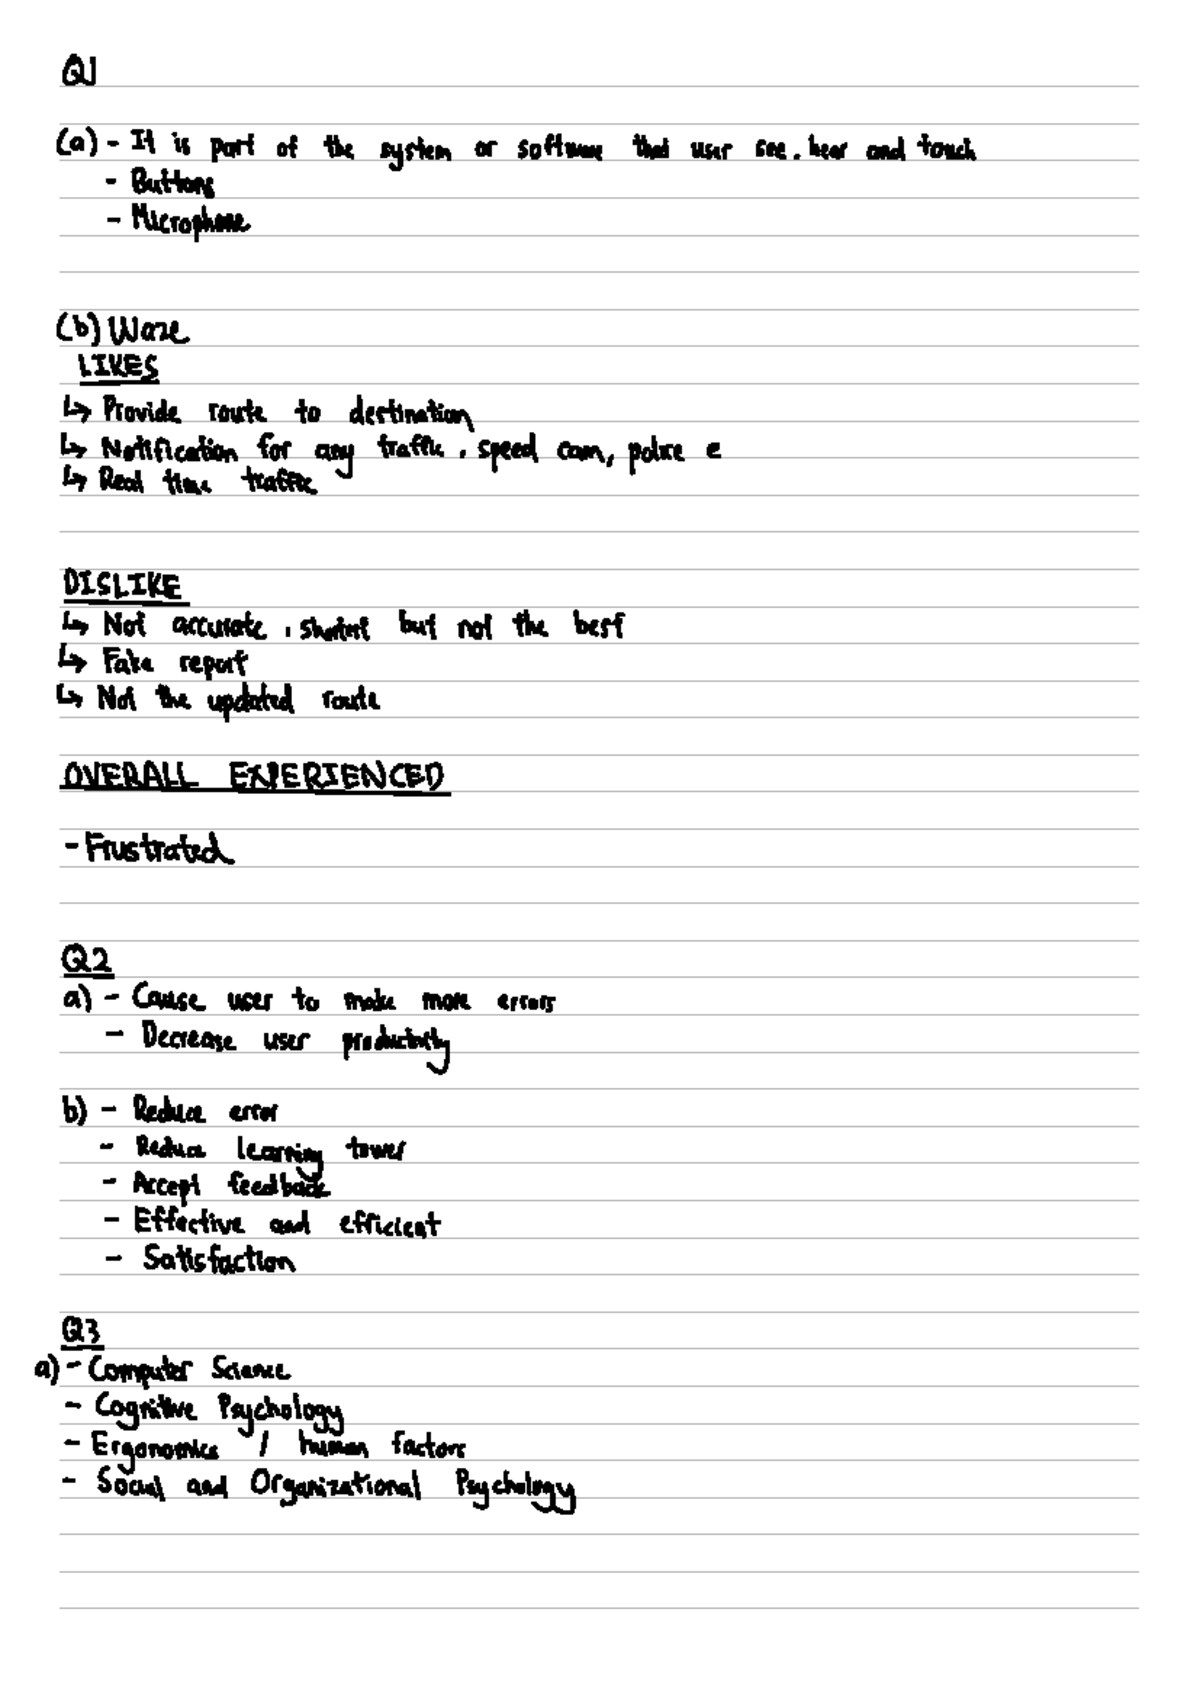 Q1
(a) - It is part of the system or software that user see, hear and touch
- Buttons
- Microphone
(b) Waze
LIKES
↳ Provide route to destination
↳ Notification for any traffic, speed cam, police e
↳ Real time traffic
DISLIKE
↳ Not accurate, shortest but not the best
↳ Fake report
↳ Not the updated route
OVERALL EXPERIENCED
- Frustrated
Q2
a) - Cause user to make more errors
- Decrease user productivity
b) - Reduce error
- Reduce learning tower
- Accept feedback
- Effective and efficient
- Satisfaction
Q3
a) - Computer Science
- Cognitive Psychology
- Ergonomics / human factors
- Social and Organizational Psychology